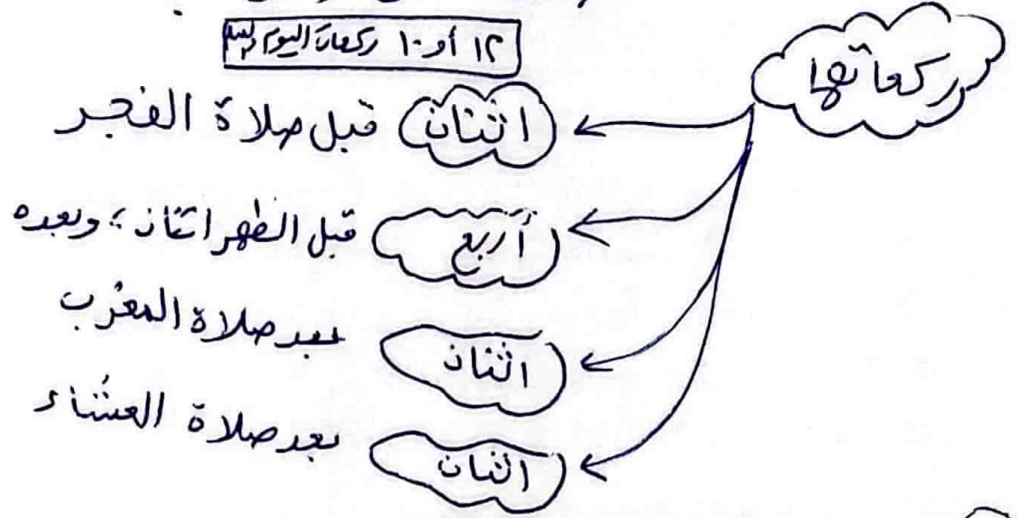 ١٢ أو ١٠ ركعات اليوم
ركعاتها
اثنان قبل صلاة الفجر
أربع قبل الظهر اثنان؛ وبعده
اثنان بعد صلاة المغرب
اثنان بعد صلاة العشاء